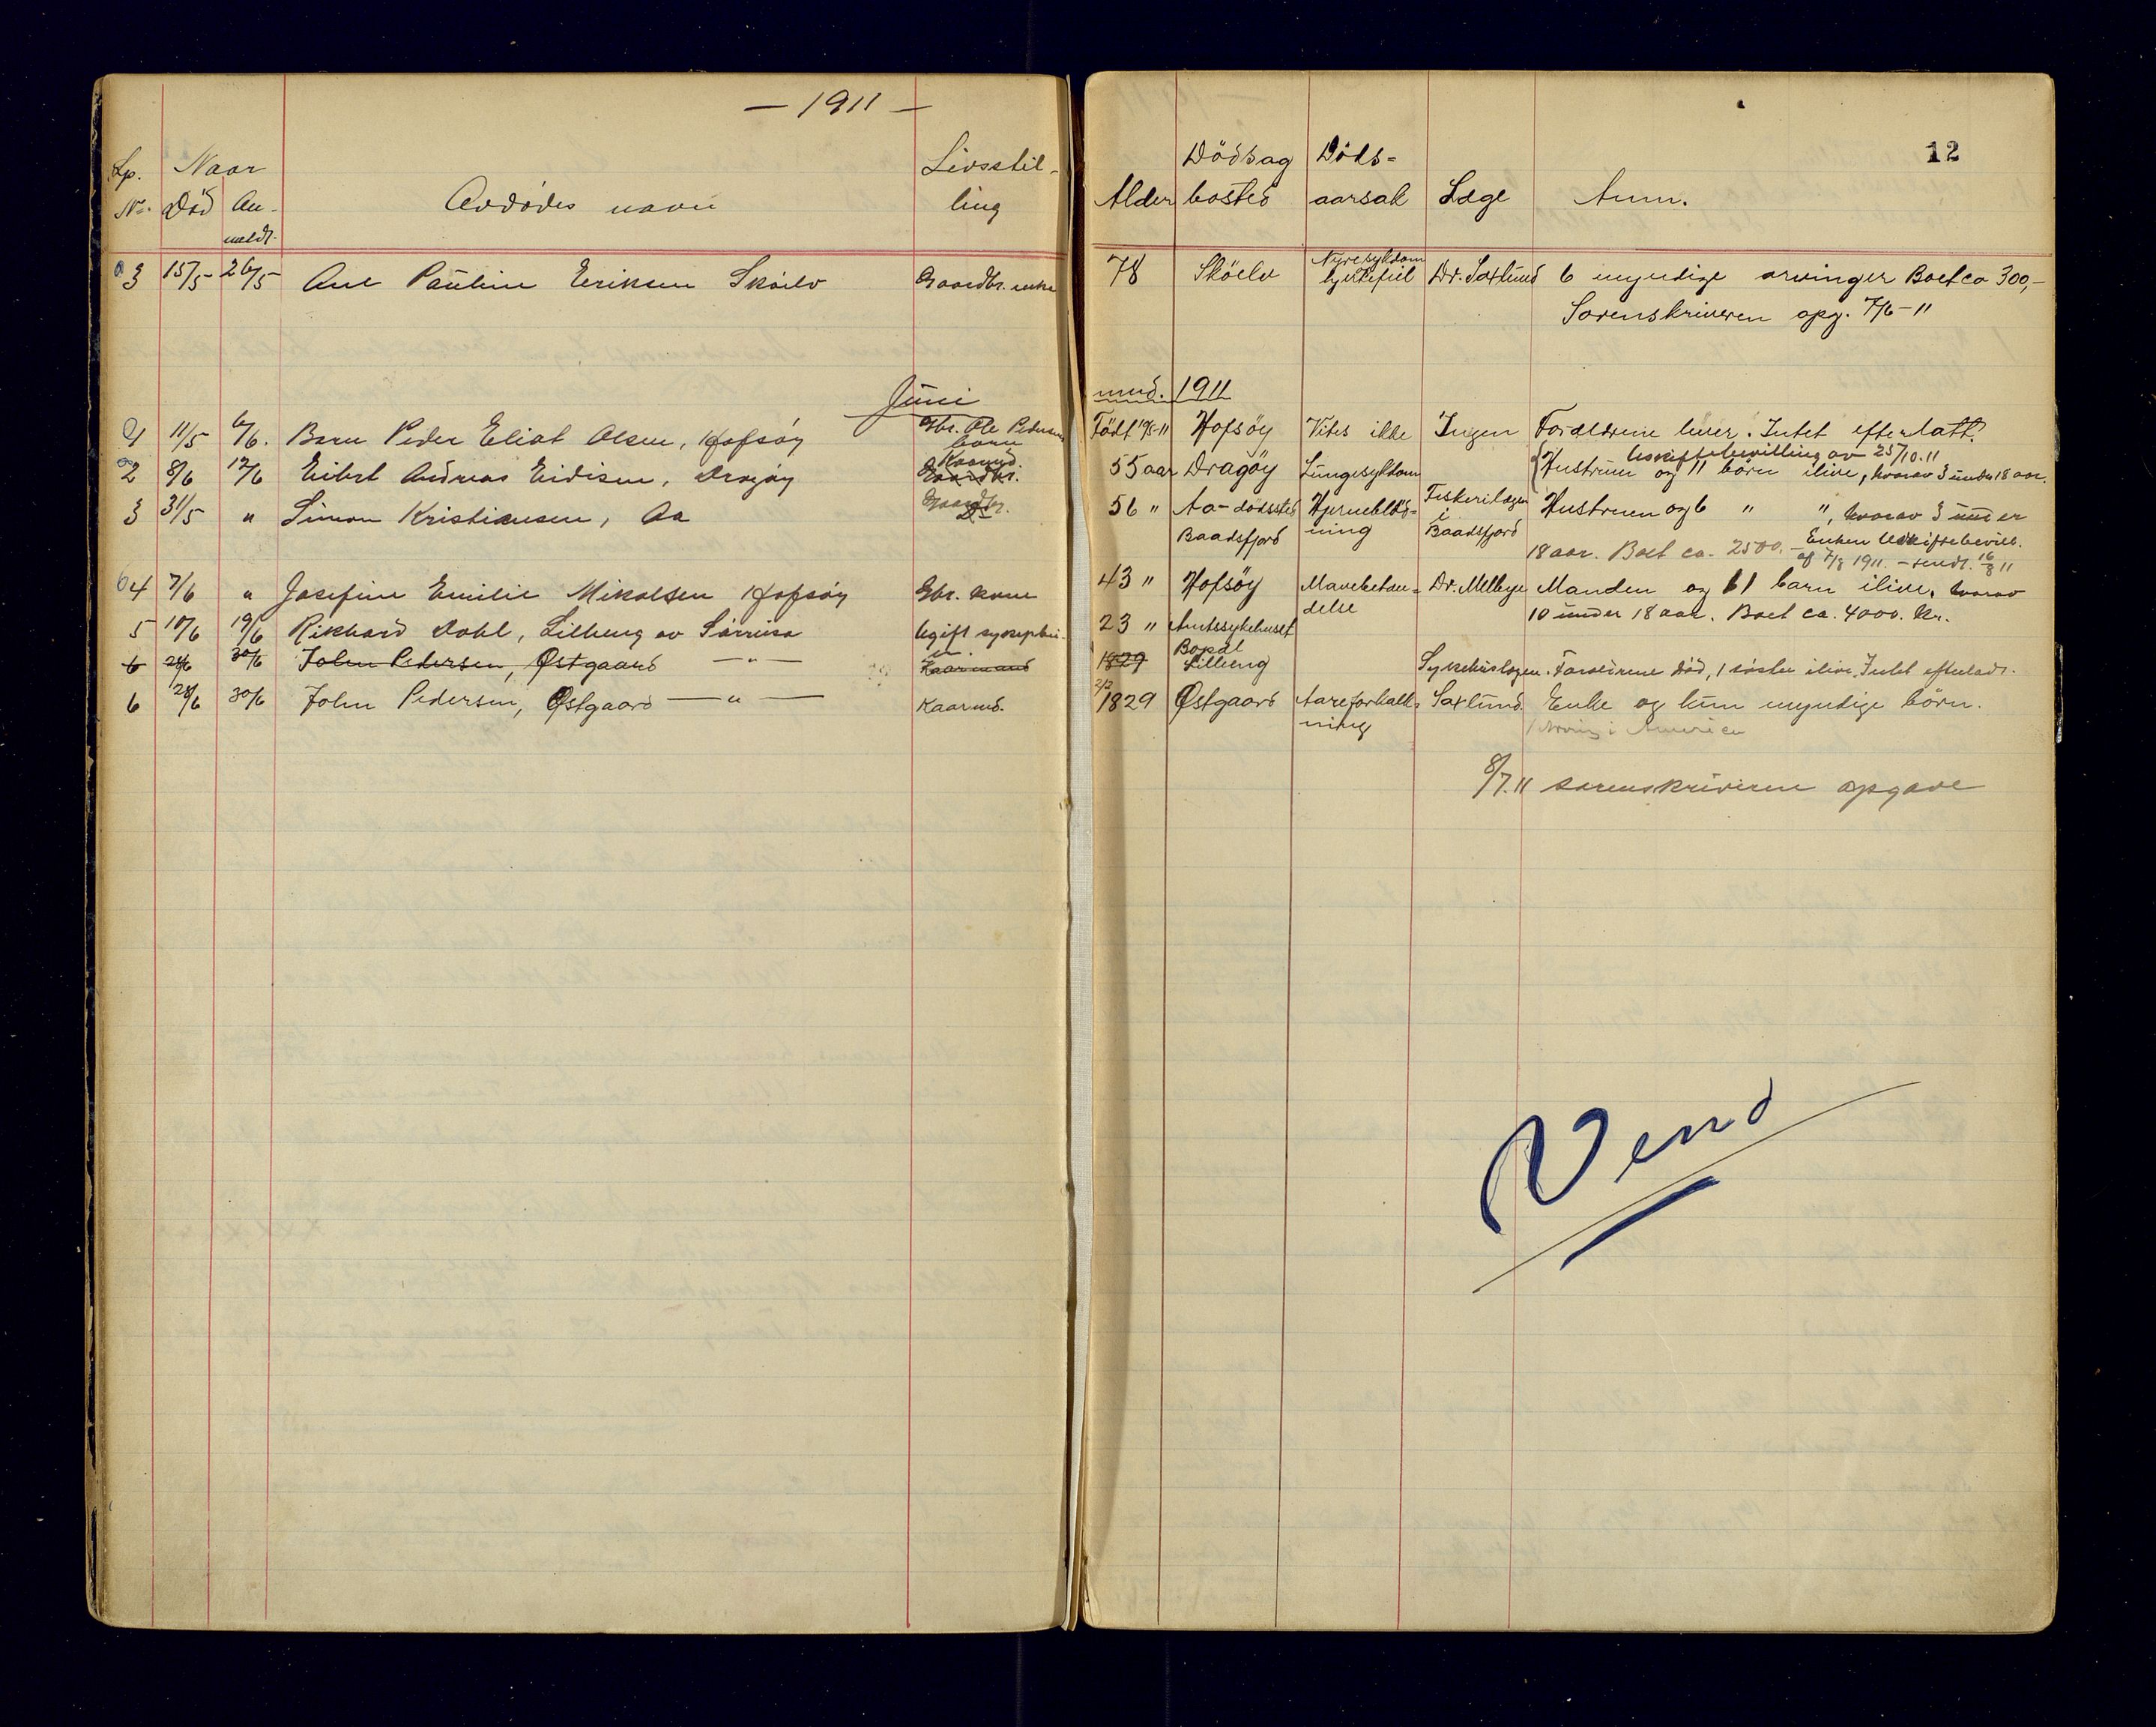 — 1911 —
12
Lp. Nr. Naar Död An- meldt. Avdödes navn Livsstil- ling Alder Dödsag bosted Döds= aarsak Læge Anm.
3 15/5 26/5 Ane Pauline Eriksen Sköelv Gaardbr. enke 78 Sköelv Nyresykdom hjertefeil Dr. Saxlund 6 myndige arvinger Boet ca 300,-
Sorenskriveren opg. 7/6-11
Juni mnd. 1911
1 11/5 6/6. Barn Peder Eliot Olsen, Hofsöy Gbr. Ole Pedersens barn Født Hofsöy Vites ikke Ingen Forældrene lever. Intet efterlatt.
Uskiftebevilling av 25/10.11
2 8/6 12/6 Eibert Andreas Eidisen, Dragöy Kaarmd. Gaardbr. 55 aar Dragöy Lungesykdom Hustruen og 11 børn ilive, hvorav 3 under 18 aar.
3 31/5 " Simon Kristiansen, Aa Gaardbr. 56 " Aa - dödssted Baadsfjord Hjerneblöd= ning Fiskerilægen i Baadsfjord Hustruen og 6 " ", hvorav 3 under
18 aar. Boet ca. 2500.- Enken Uskiftebevill. af 7/8 1911. - sendt. 16/8 11
4 7/6 " Josefine Emilie Mikalsen Hofsöy Gbr. kone 43 " Hofsöy Mavebetæn= delse Dr. Melbye Manden og 11 barn ilive, hvorav
10 under 18 aar. Boet ca. 4000. Kr.
5 10/6 19/6 Rikhard Dahl, Lilleng av Sörreisa Ugift 23 " Amtssykehuset Bopæl Lilleng Sykehuslægen. Forældrene död, 1 söster ilive. Intet efterladt.
6 28/6 30/6 John Pedersen, Østgaard — " — Kaarmand 1829
6 28/6 30/6 John Pedersen, Østgaard — " — Kaarmd. 2/2 1829 Østgaard Aareforkalk= ning Saxlund Enke og kun myndige börn.
1 Arving i America
8/7.11 sorenskriveren opgave
Vend